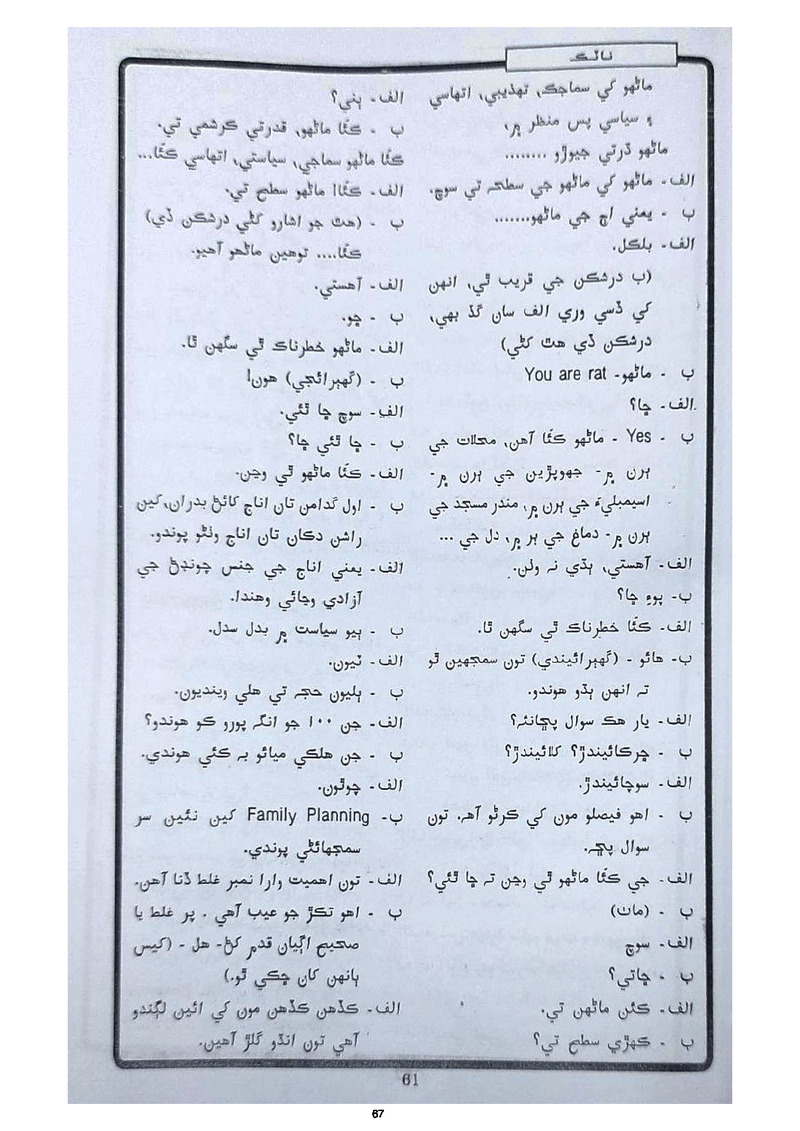 ناٽڪ
ماڻهو کي سماجڪ، تهذيبي، اتهاسي
۽ سياسي پس منظر ۾،
ماڻهو ڌرتي جيوڙو ........
الف- ماڻهو کي ماڻهو جي سطحہ تي سوچ.
ب - يعني اڄ جي ماڻهو.......
الف- بلڪل.
(ب درشڪن جي قريب ٿي، انهن
کي ڏسي وري الف سان گڏ بهي،
درشڪن ڏي هٿ کڻي)
ب - ماڻهو- You are rat
الف- ڇا؟
ب - Yes - ماڻهو ڪئا آهن، محلات جي
ٻرن ۾- جهوپڙين جي ٻرن ۾-
اسيمبليءَ جي ٻرن ۾، مندر مسجد جي
ٻرن ۾- دماغ جي ٻر ۾، دل جي ...
الف- آهستي، ٻڌي نہ ولن.
ب- پوءِ ڇا؟
الف- ڪئا خطرناڪ ٿي سگهن ٿا.
ب- هائو - (گهٻرائيندي) تون سمجهين ٿو
تہ انهن ٻڌو هوندو.
الف- يار هڪ سوال پڇانئہ؟
ب - چرڪائيندڙ؟ کلائيندڙ؟
الف- سوچائيندڙ.
ب - اهو فيصلو مون کي ڪرڻو آهہ. تون
سوال پڇہ.
الف- جي ڪئا ماڻهو ٿي وڃن تہ ڇا ٿئي؟
ب - (مات)
الف- سوچ
ب - ڇاتي؟
الف- ڪئن ماڻهن تي.
ب - ڪهڙي سطح تي؟
الف- ٻني؟
ب - ڪئا ماڻهو، قدرتي ڪرشمي تي.
ڪئا ماڻهو سماجي، سياستي، اتهاسي ڪئا...
الف- ڪئا! ماڻهو سطح تي.
ب - (هٿ جو اشارو کڻي درشڪن ڏي)
ڪئا.... توهين ماڻهو آهيو.
الف- آهستي.
ب - ڇو.
الف- ماڻهو خطرناڪ ٿي سگهن ٿا.
ب - (گهٻرائجي) هون!
الف- سوچ ڇا ٿئي.
ب - ڇا ٿئي ڇا؟
الف- ڪئا ماڻهو ٿي وڃن.
ب - اول گدامن تان اناج کائڻ بدران، کين
راشن دڪان تان اناج وٺڻو پوندو.
الف- يعني اناج جي جنس چونڊڻ جي
آزادي وڃائي وهندا.
ب - ٻيو سياست ۾ بدل سدل.
الف- ٽيون.
ب - ٻليون حجہ تي هلي وينديون.
الف- جن ۱۰۰ جو انگہ پورو ڪو هوندو؟
ب - جن هلڪي ميائو بہ ڪئي هوندي.
الف- چوٿون.
ب- Family Planning کين نئين سر
سمجهائڻي پوندي.
الف- تون اهميت وارا نمبر غلط ڏنا آهن.
ب - اهو تڪڙ جو عيب آهي . پر غلط يا
صحيح اڳيان قدم کڻ- هل - (کيس
ٻانهن کان ڇڪي ٿو.)
الف- ڪڏهن ڪڏهن مون کي ائين لڳندو
آهي تون انڌو گلڙ آهين.
61
67